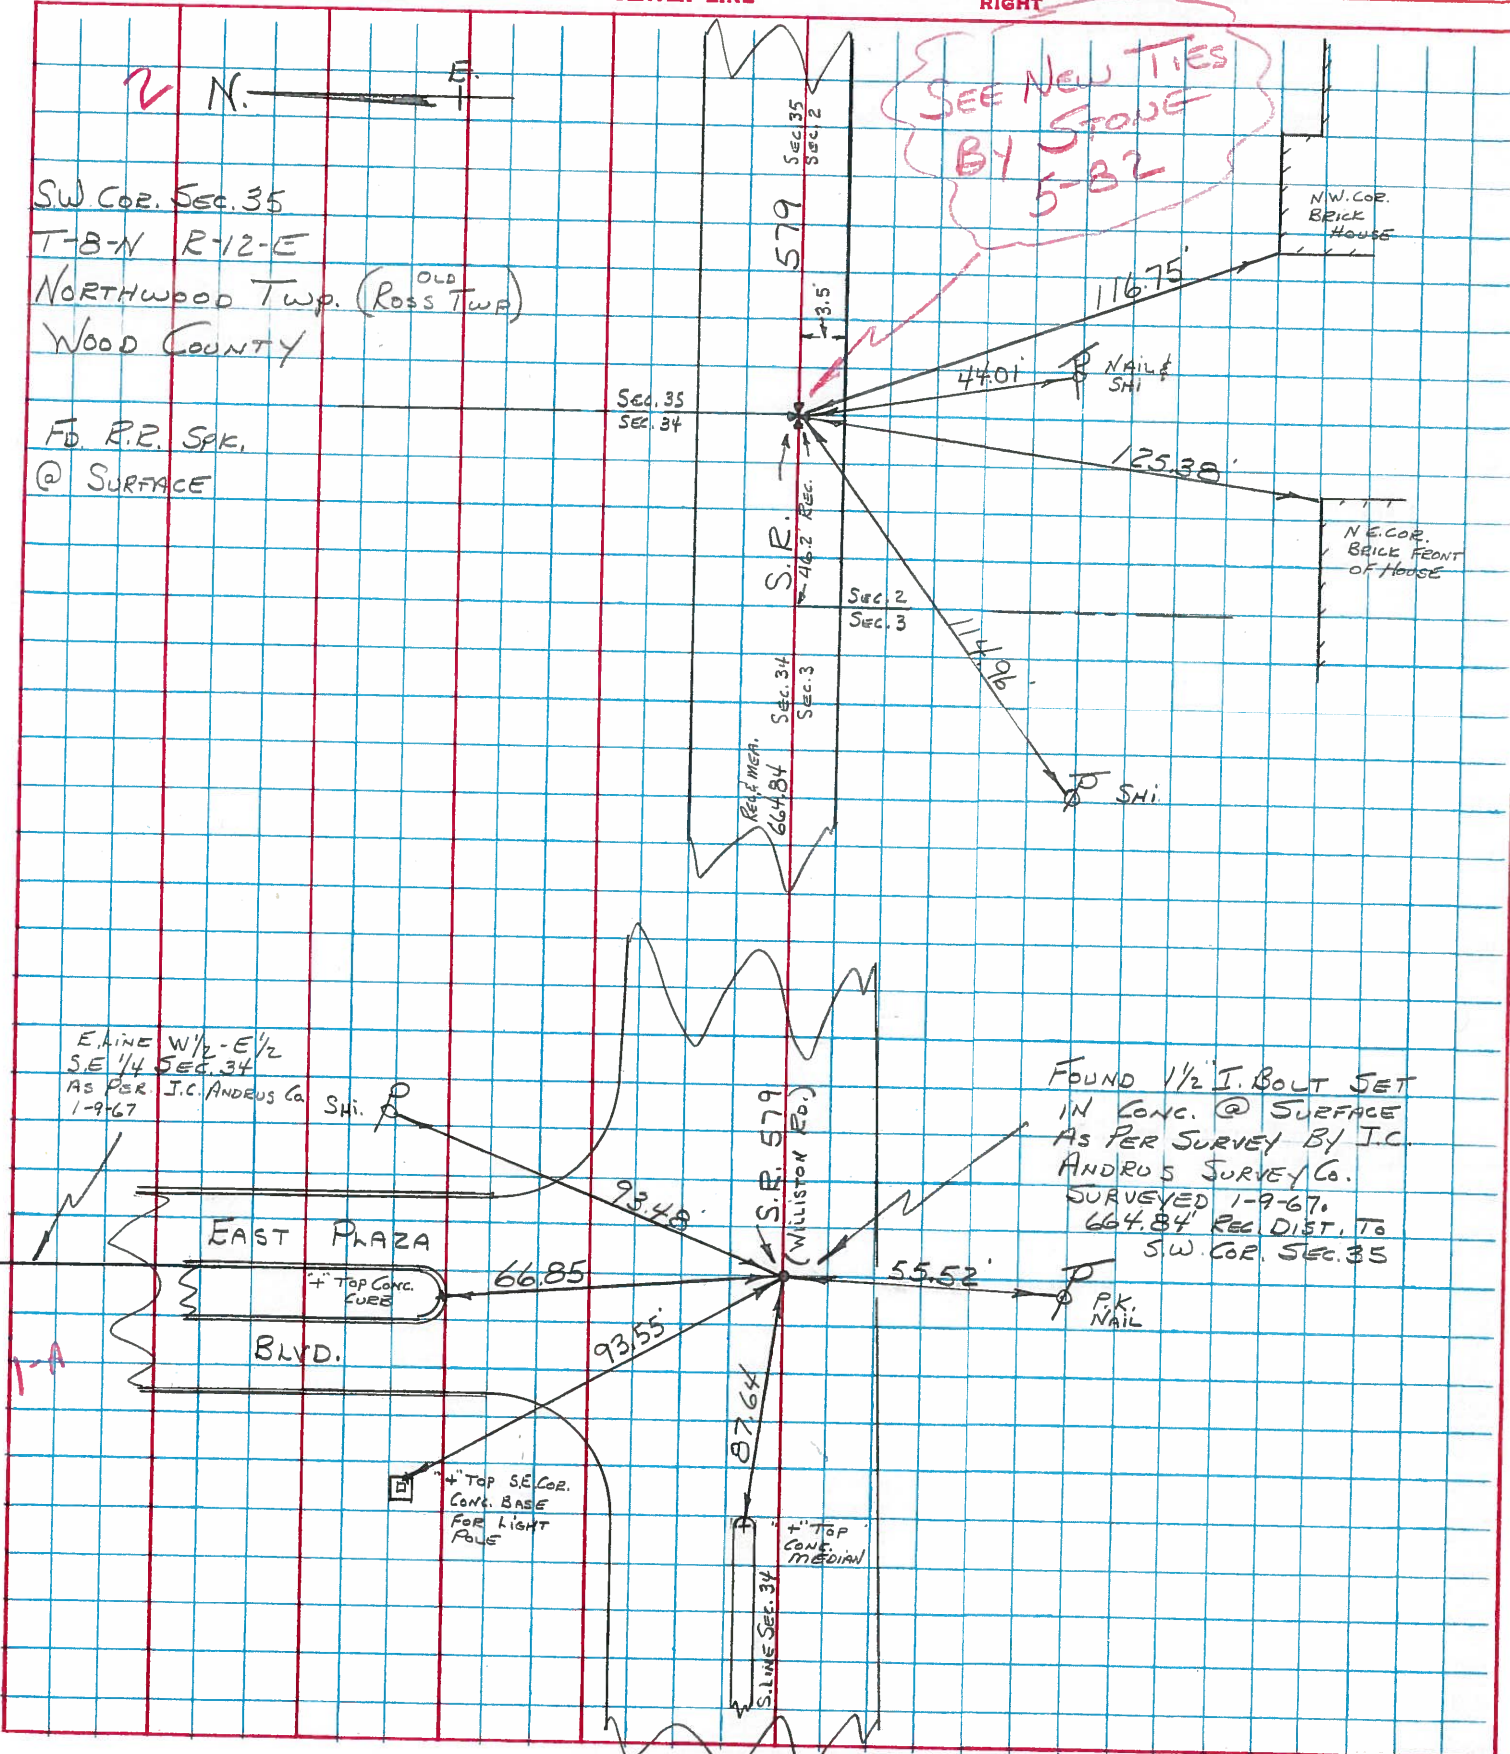 RIGHT
2
N.
E.
S.W. COR. SEC. 35
T-8-N R-12-E
NORTHWOOD TWP. (OLD ROSS TWP)
WOOD COUNTY
FD. R.R. SPK.
@ SURFACE
SEE NEW TIES
BY STONE
5-82
SEC. 35
SEC. 2
579
3.5'
N.W. COR.
BRICK
HOUSE
116.75'
44.01'
NAIL &
SHI
SEC. 35
SEC. 34
125.38'
N.E. COR.
BRICK FRONT
OF HOUSE
S.R.
46.2' REC.
SEC. 2
SEC. 3
114.96'
SHI.
SEC. 34
SEC. 3
REC. & MEA.
664.84
E. LINE W 1/2 - E 1/2
S.E 1/4 SEC. 34
AS PER. J.C. ANDRUS Co.
1-9-67
SHI.
93.48'
S.R. 579
(WILLISTON RD.)
FOUND 1 1/2" I. BOLT SET
IN CONC. @ SURFACE
AS PER SURVEY BY J.C.
ANDRUS SURVEY Co.
SURVEYED 1-9-67.
664.84' REC. DIST. TO
S.W. COR. SEC. 35
EAST PLAZA
"+" TOP CONC.
CURB
66.85
55.52'
P.K.
NAIL
BLVD.
1-A
93.55'
87.64'
"+" TOP S.E. COR.
CONC. BASE
FOR LIGHT
POLE
"+" TOP
CONC.
MEDIAN
S. LINE SEC. 34